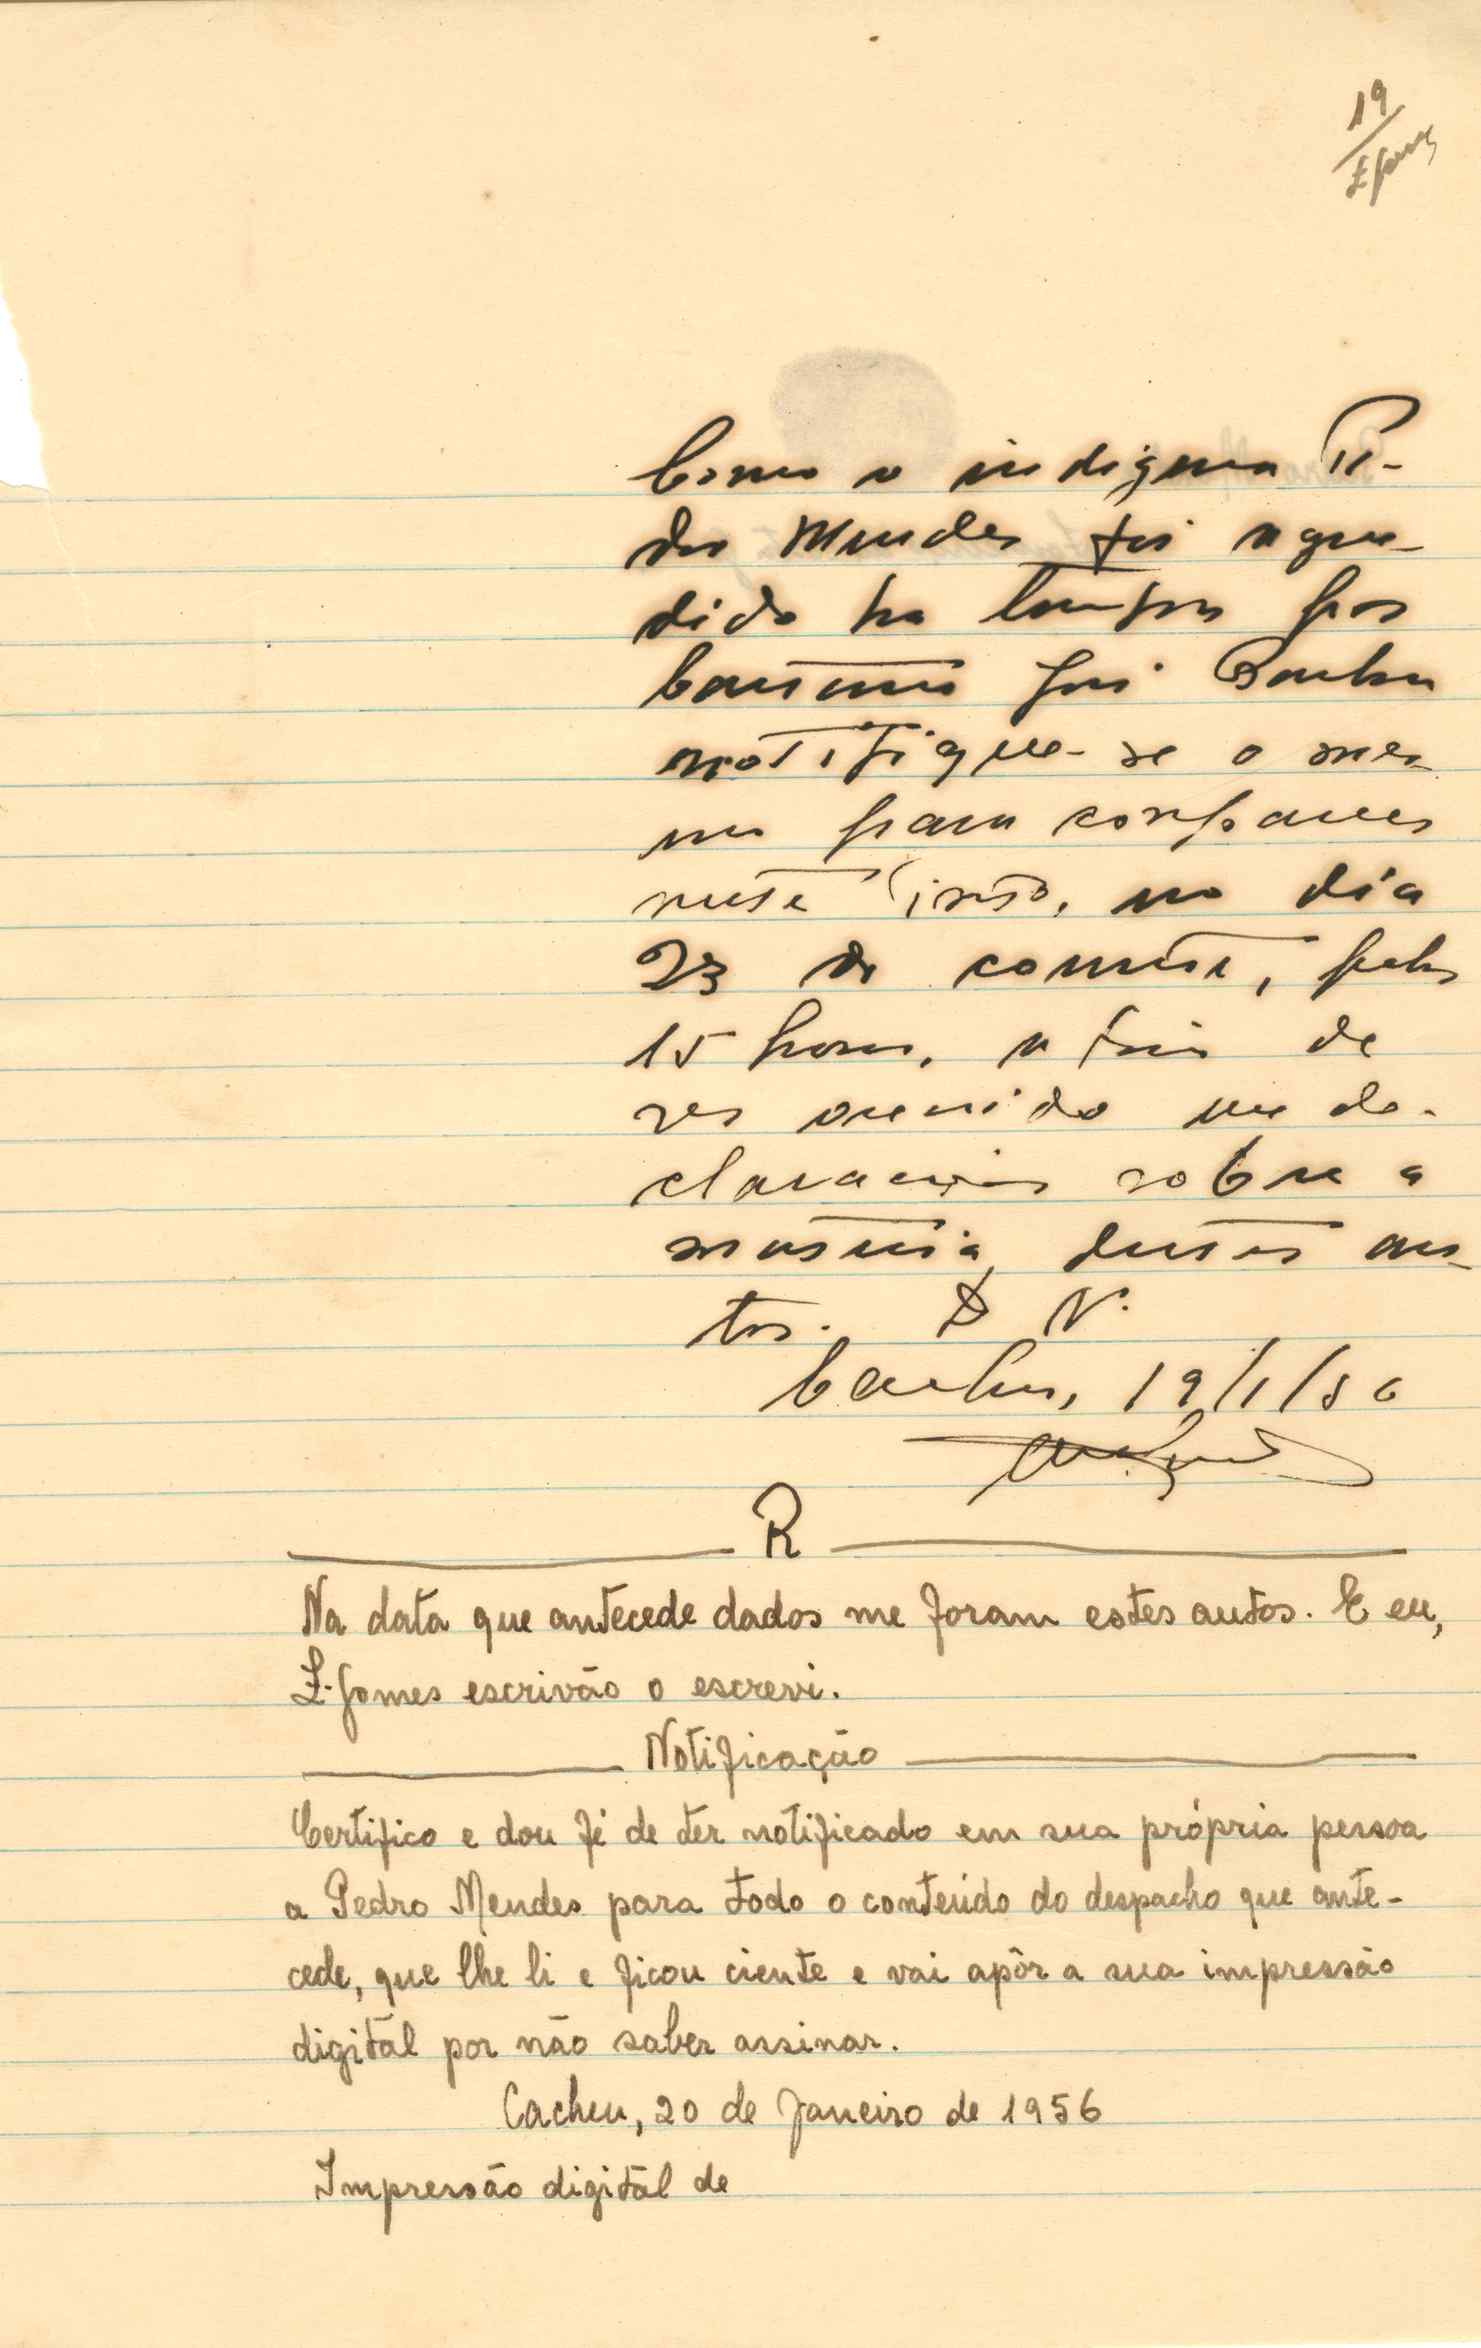 19
E Gomes
Como o indigena Pe-
dro Mendes foi agre-
dido ha tempos por
Caetano José Barbosa
notifique-se o mes-
mo para comparecer
neste no dia
23 do corrente, pelas
15 horas, a fim de
ser ouvido em de-
clarações sobre a
matéria destes au-
tos. D N.
Cacheu, 19/1/56
R
Na data que antecede dados me foram estes autos. E eu,
E. Gomes escrivão o escrevi.
Notificação
Certifico e dou fé de ter notificado em sua própria pessoa
a Pedro Mendes para todo o conteúdo do despacho que ante-
cede, que lhe li e ficou ciente e vai apôr a sua impressão
digital por não saber assinar.
Cacheu, 20 de Janeiro de 1956
Impressão digital de